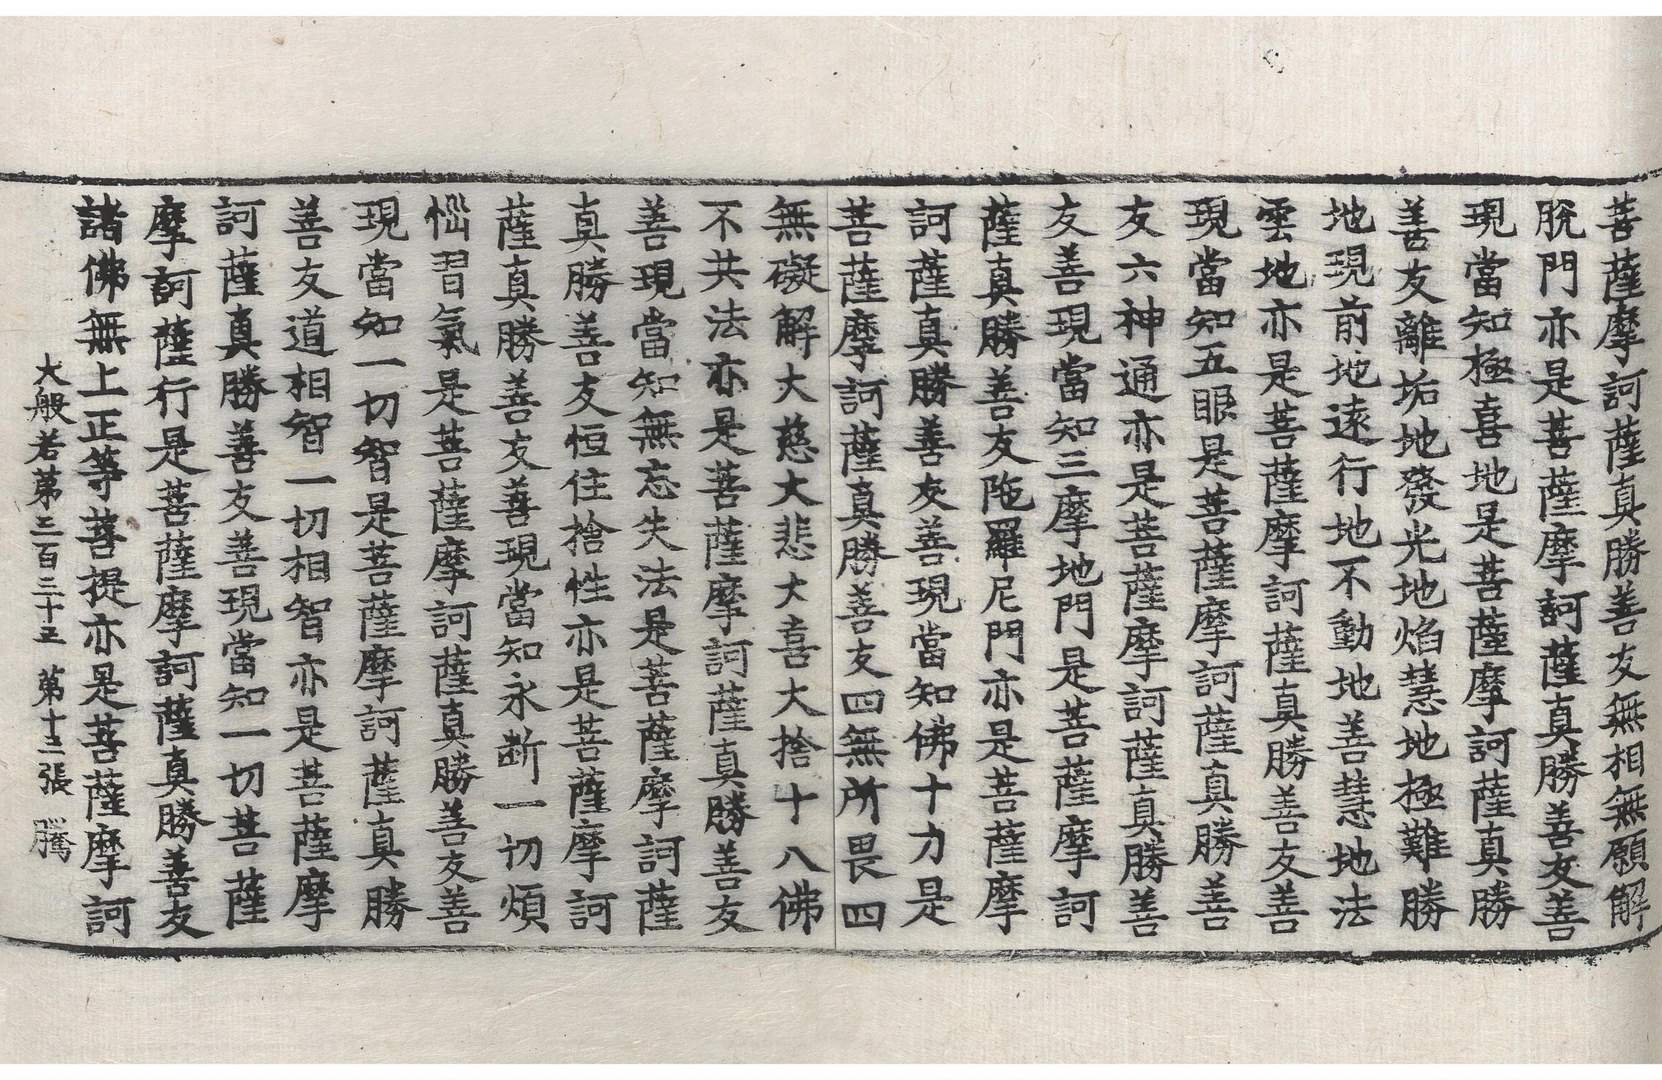 菩薩摩訶薩真勝善友無相無願解
脫門亦是菩薩摩訶薩真勝善友善
現當知極喜地是菩薩摩訶薩真勝
善友離垢地發光地焰慧地極難勝
地現前地遠行地不動地善慧地法
雲地亦是菩薩摩訶薩真勝善友善
現當知五眼是菩薩摩訶薩真勝善
友六神通亦是菩薩摩訶薩真勝善
友善現當知三摩地門是菩薩摩訶
薩真勝善友陁羅尼門亦是菩薩摩
訶薩真勝善友善現當知佛十力是
菩薩摩訶薩真勝善友四無所畏四
無礙解大慈大悲大喜大捨十八佛
不共法亦是菩薩摩訶薩真勝善友
善現當知無忘失法是菩薩摩訶薩
真勝善友恒住捨性亦是菩薩摩訶
薩真勝善友善現當知永斷一切煩
惱習氣是菩薩摩訶薩真勝善友善
現當知一切智是菩薩摩訶薩真勝
善友道相智一切相智亦是菩薩摩
訶薩真勝善友善現當知一切菩薩
摩訶薩行是菩薩摩訶薩真勝善友
諸佛無上正等菩提亦是菩薩摩訶
大般若第三百三十五 第十三張 騰